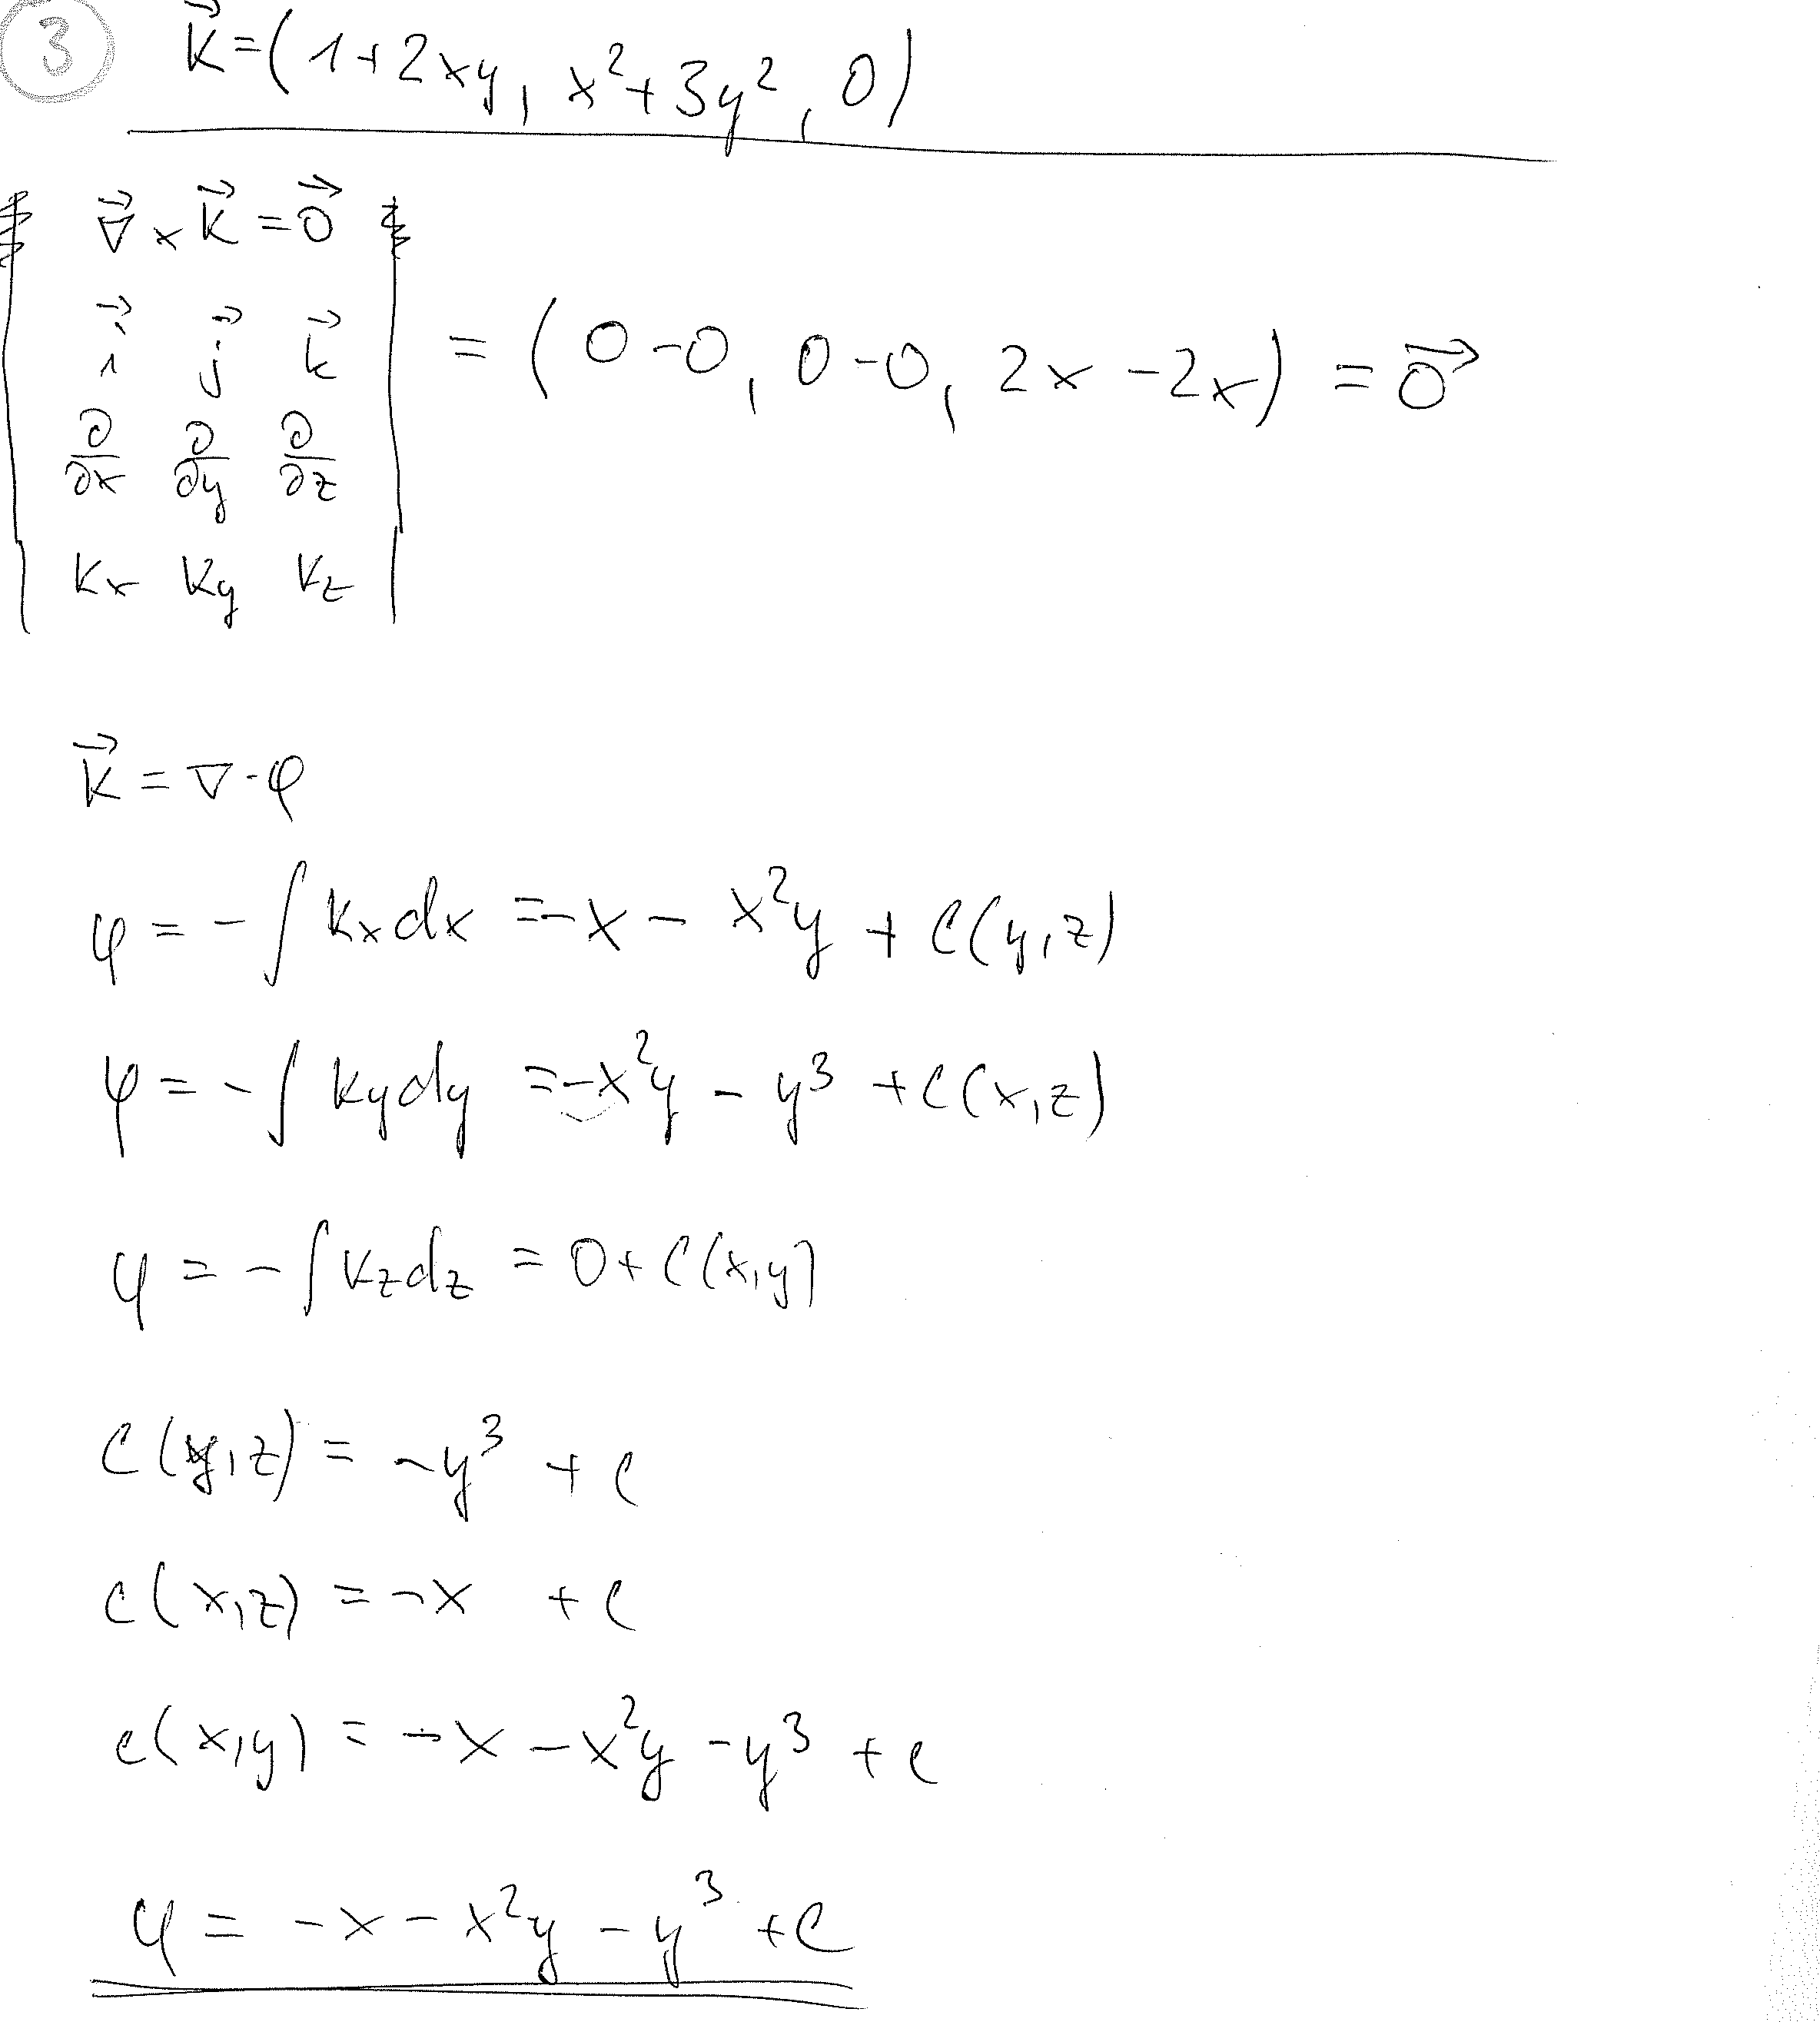 3
K⃗ = (1+2xy, x²+3y², 0)
∇⃗ × K⃗ = 0⃗
| i⃗ j⃗ k⃗ |
| ∂/∂x ∂/∂y ∂/∂z | = (0-0, 0-0, 2x-2x) = 0⃗
| Kx Ky Kz |
K⃗ = ∇·φ
φ = -∫ Kx dx = -x - x²y + C(y,z)
φ = -∫ Ky dy = -x²y - y³ + C(x,z)
φ = -∫ Kz dz = 0 + C(x,y)
C(y,z) = -y³ + C
C(x,z) = -x + C
C(x,y) = -x - x²y - y³ + C
φ = -x - x²y - y³ + C